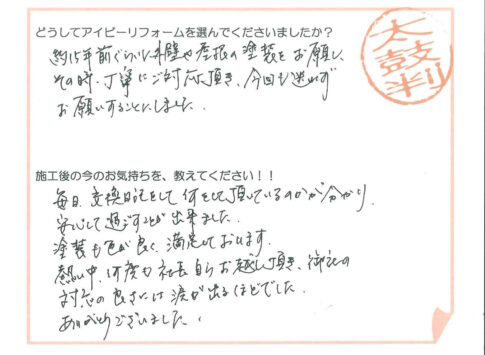 どうしてアイビーリフォームを選んでくださいましたか？
約15年前ぐらいに外壁や屋根の塗装をお願いし、
その時、丁寧にご対応頂き、今回も迷わず
お願いすることにしました。
太鼓判
施工後の今のお気持ちを、教えてください！！
毎日、交換日記をして何をして頂いているのかが分かり、
安心して過ごすことが出来ました。
塗装も色が良く、満足しております。
熱い中、何度か社長自らお越し頂き、御社の
対応の良さには涙が出るほどでした。
ありがとうございました。